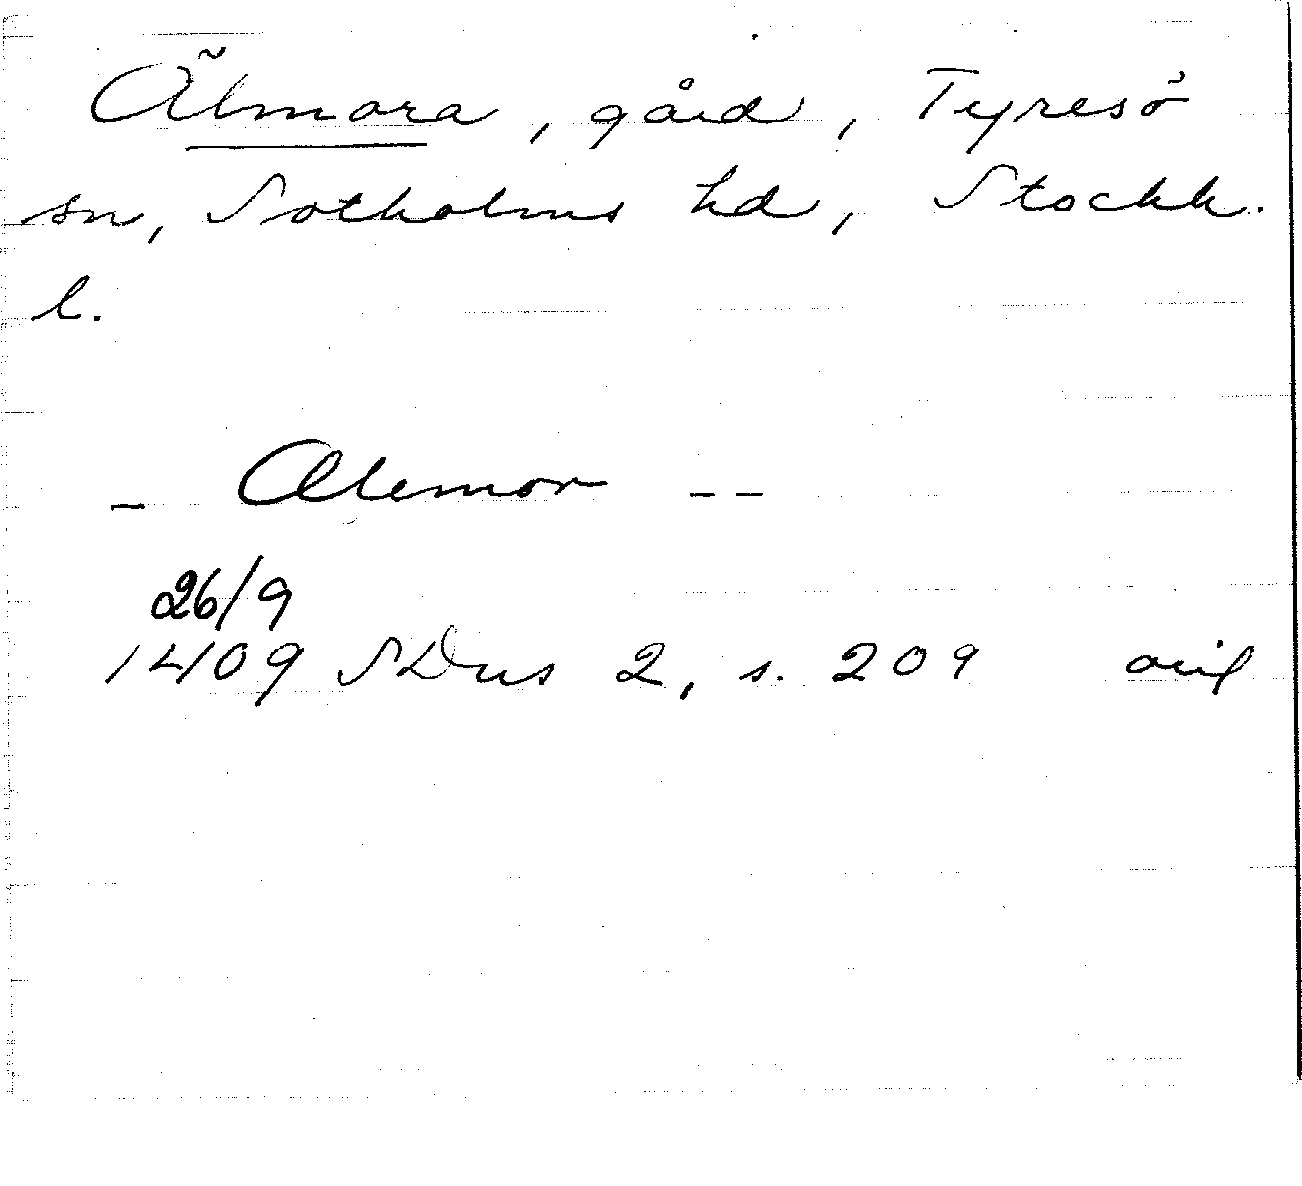 Älmora, gård, Tyresö
sn, Sotholms hd, Stockh.
l.
– Alemor – –
26/9
1409 SDns 2, s. 209 orig